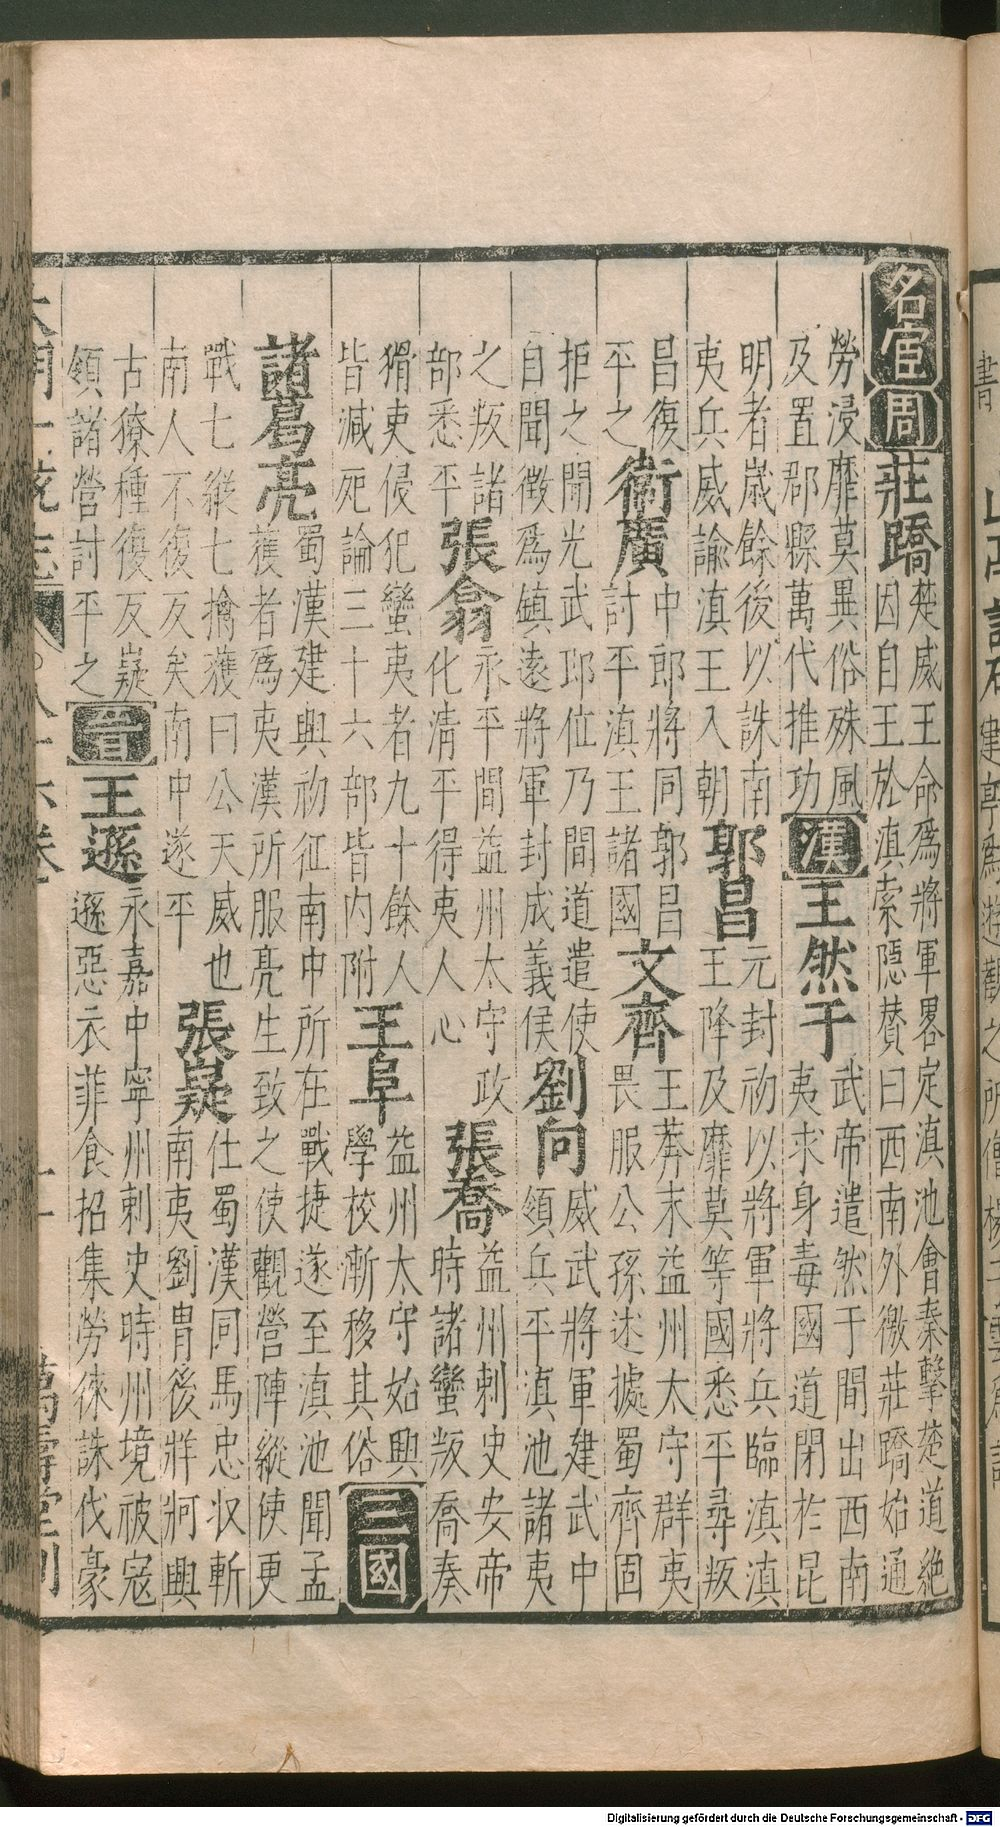 名宦
周
莊蹻
楚威王命爲將軍畧定滇池會秦擊楚道絶
因自王於滇索隱賛曰西南外徼莊蹻始通
勞浸靡莫異俗殊風
及置郡縣萬代推功
漢
王然于
武帝遣然于間出西南
夷求身毒國道閉於昆
明者嵗餘後以誅南
夷兵威諭滇王入朝
郭昌
元封初以將軍將兵臨滇滇
王降及靡莫等國悉平尋叛
昌復
平之
衛廣
中郎將同郭昌
討平滇王諸國
文齊
王莽末益州太守群夷
畏服公孫述據蜀齊固
拒之聞光武即位乃間道遣使
自聞徴爲鎮逺將軍封成義侯
劉向
威武將軍建武中
領兵平滇池諸夷
之叛諸
部悉平
張翕
永平間益州太守政
化清平得夷人心
張喬
益州刺史安帝
時諸蠻叛喬奏
猾吏侵犯蠻夷者九十餘人
皆減死論三十六部皆内附
王阜
益州太守始興
學校漸移其俗
三國
諸葛亮
蜀漢建興初征南中所在戰捷遂至滇池聞孟
獲者爲夷漢所服亮生致之使觀營陣縱使更
戰七縱七擒獲曰公天威也
南人不復反矣南中遂平
張嶷
仕蜀漢同馬忠収斬
南夷劉胄後牂牁興
古獠種復反嶷
領諸營討平之
晉
王遜
永嘉中寧州刺史時州境被寇
遜惡衣菲食招集勞徠誅伐豪
大明一統志
八十六卷
十一
萬壽堂刊
Digitalisierung gefördert durch die Deutsche Forschungsgemeinschaft - DFG